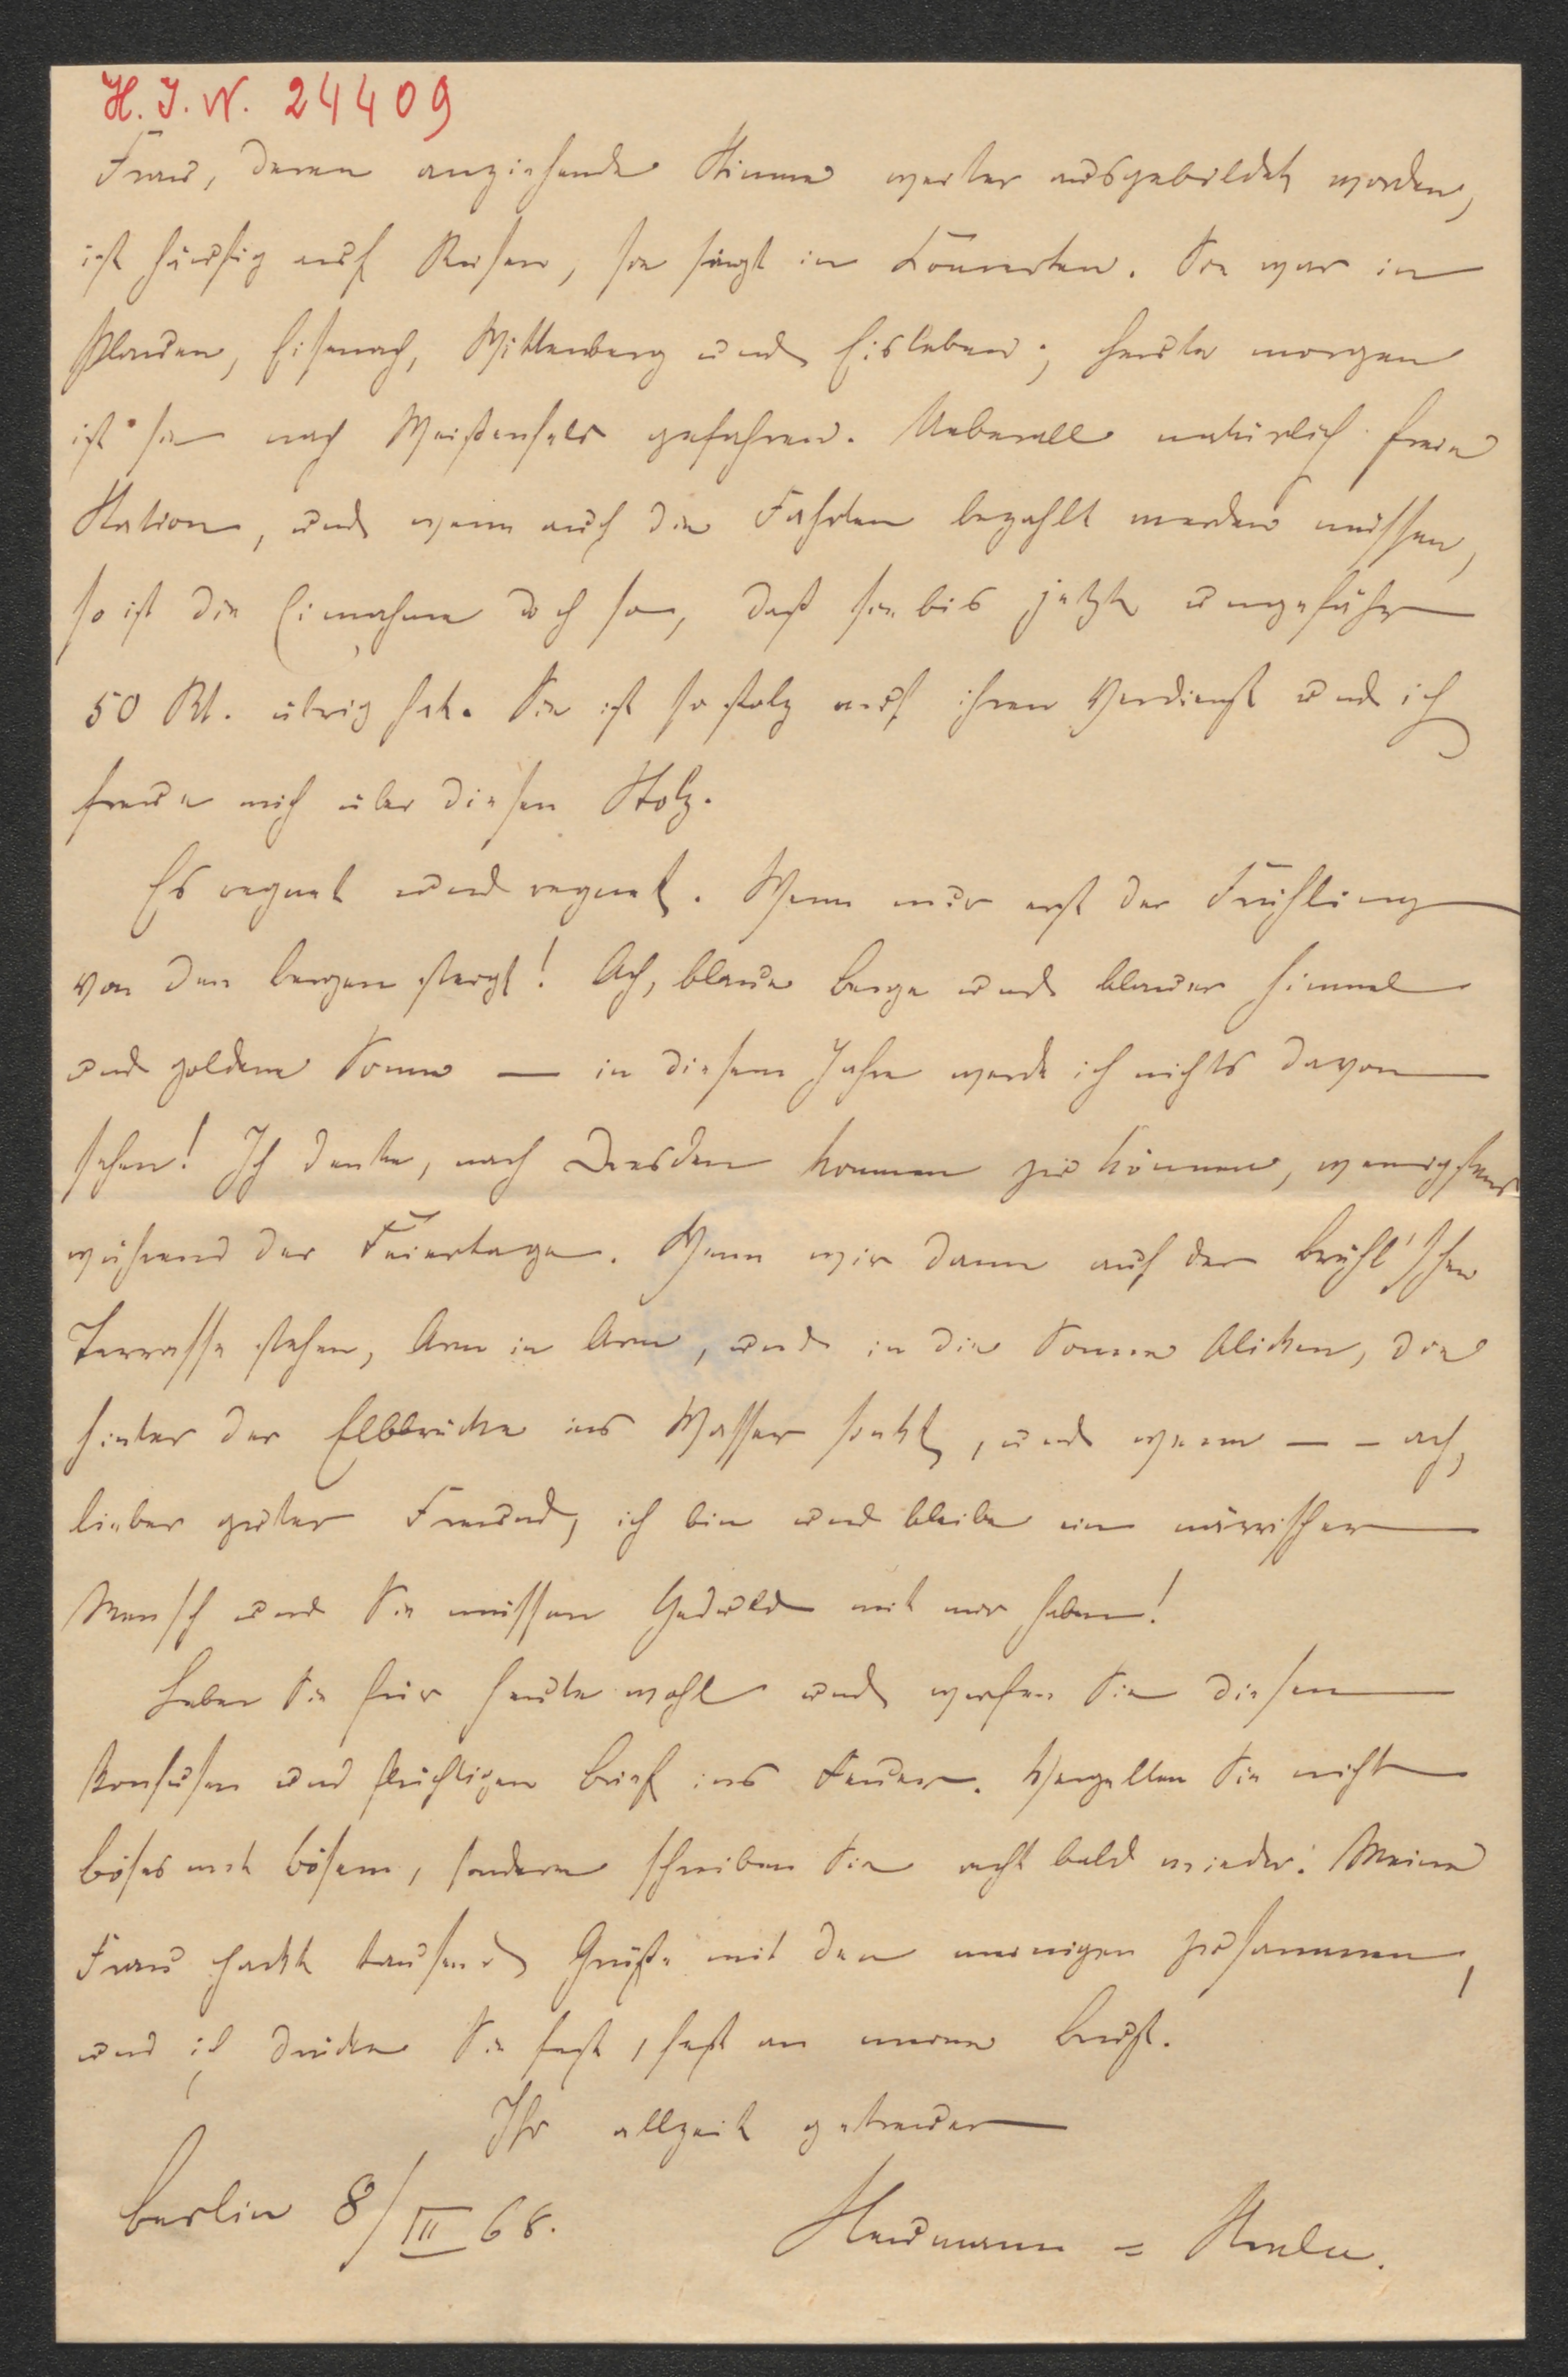 H. I. N. 24409
Frau, deren anziehende Stimme weiter ausgebildet worden,
ist häufig auf Reisen, sie singt in Konzerten. Sie war in
Plauen, Eisenach, Wittenberg und Eisleben; heute morgen
ist sie nach Weißenfels gefahren. Ueberall natürlich freie
Station, und wenn auch die Fahrten bezahlt werden müssen,
so ist die Einnahme doch so, daß sie bis jetzt ungefähr
50 Rt. übrig hat. Sie ist so stolz auf ihren Verdienst und ich
freue mich über diesen Stolz.
Es regnet und regnet. Wenn nur erst der Frühling
von den Bergen steigt! Ach, blaue Berge und blauer Himmel
und goldene Sonne — in diesem Jahre werde ich nichts davon
sehen! Ich denke, nach Dresden kommen zu können, wenigstens
während der Feiertage. Wenn wir dann auf der Brühl'schen
Terrasse stehen, Arm in Arm, und in die Sonne blicken, die
hinter der Elbbrücke ins Wasser sinkt, und wenn — – ach,
lieber guter Freund, ich bin und bleibe ein närrischer
Mensch und Sie müssen Geduld mit mir haben!
Leben Sie für heute wohl und werfen Sie diesen
konfusen und flüchtigen Brief ins Feuer. Vergelten Sie nicht
böses mit bösem, sondern schreiben Sie recht bald wieder. Meine
Frau packt tausend Grüße mit den meinigen zusammen,
und ich drücke Sie fest, fest an meine Brust.
Ihr allzeit getreuer
Berlin 8/III 68.
Neumann = Strela.